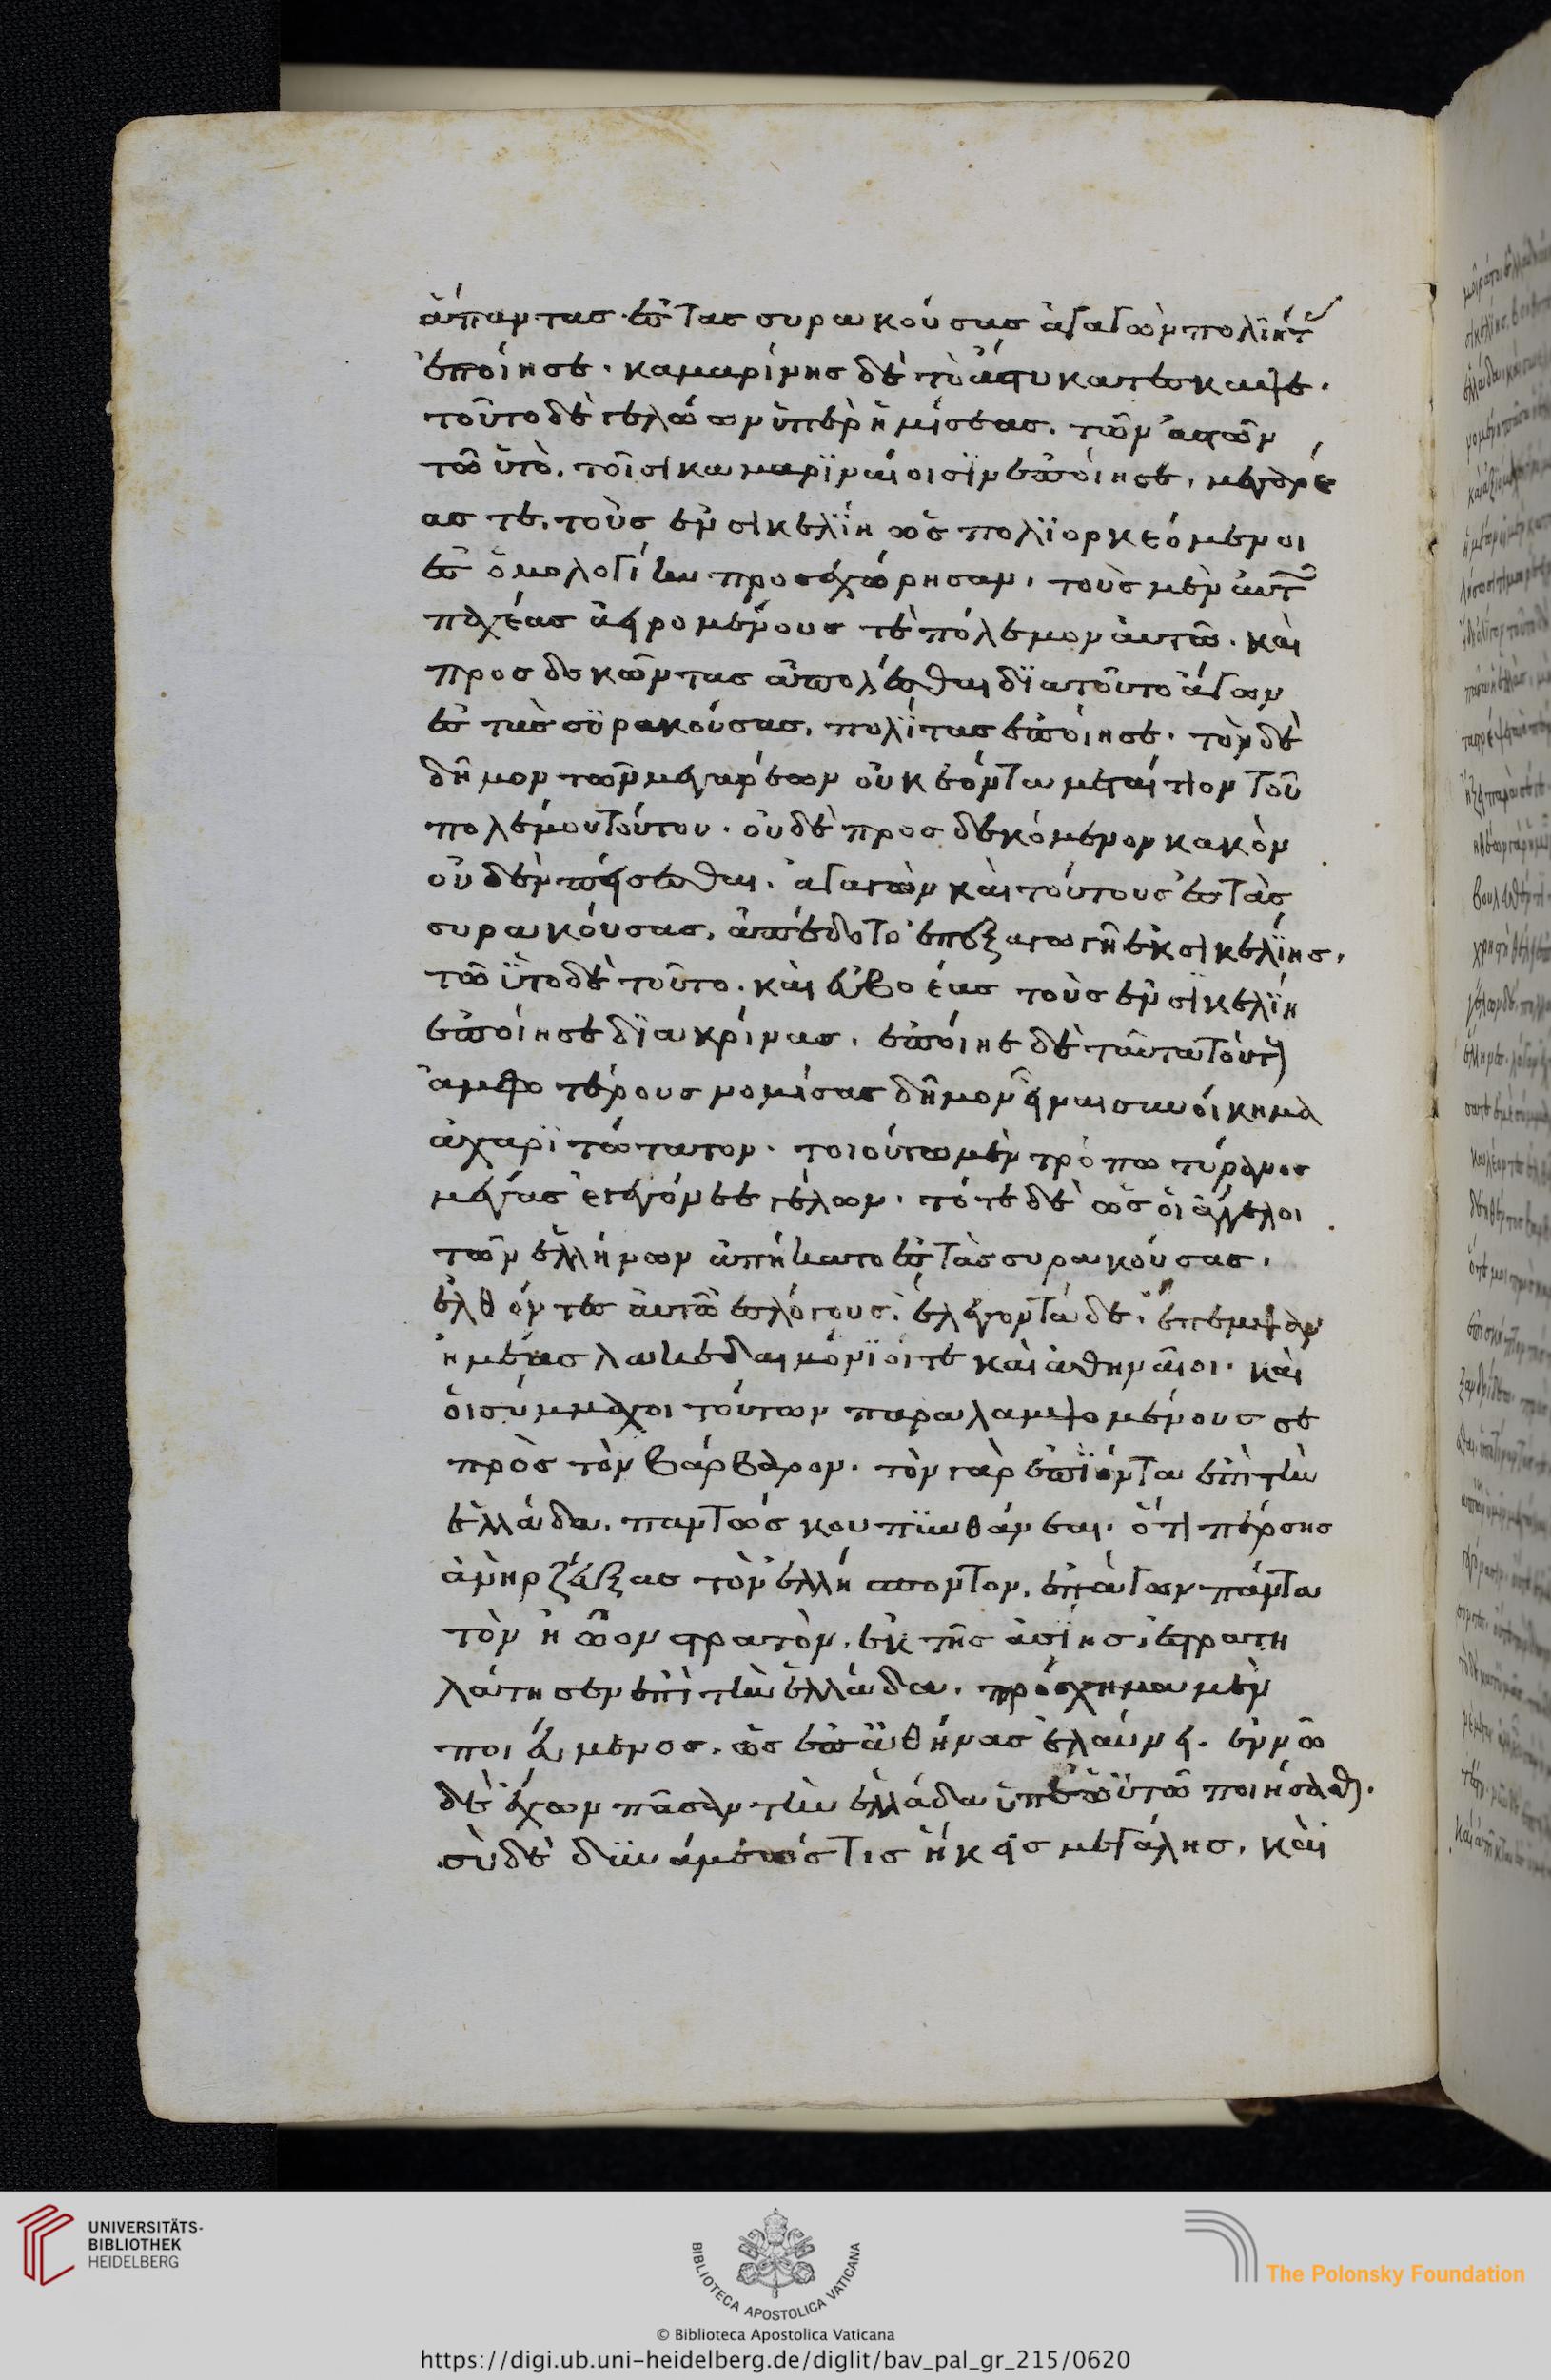 ἅπαντας ἐς τὰς συρακούσας ἀγαγὼν πολιήτ
ἐποίησε· καμαρίνης δὲ τὸ ἄστυ κατέσκαψε·
τοῦτο δὲ γελώων ὑπερημίσεας. τῶν ἀστῶν
τῶυτὸ. τοῖσι καμαριναίοισιν ἐποίησε, μεγαρέ
ας τε, τοὺς ἐν σικελίη ὡς πολιορκεόμενοι
ἐς ὁμολογίην προσεχώρησαν, τοὺς μὲν αὐτ
παχέας ἀειρομένους τε πόλεμον αὐτῶ. καὶ
προσδοκῶντας ἀπολέεσθαι διατοῦτο ἄγων
ἐς τὰς συρακούσας, πολίτας ἐποίησε· τὸν δὲ
δῆμον τῶν μεγαρέων οὐκ ἐόντα μεταίτιον τοῦ
πολέμου τούτου. οὐδὲ προσδεκόμενον κακὸν
οὐδὲν πείσεσθαι. ἀγαγὼν καὶ τούτους ἐς τὰς
συρακούσας, ἀπέδοτο ἐπεξαγωγῆ ἐκ σικελίης,
τῶυτο δὲ τοῦτο. καὶ εὐβοέας τοὺς ἐν σικελίη
ἐποίησε διακρίνας. ἐποίηε δὲ ταῦτα τούτ
ἀμφοτέρους νομίσας δῆμον εἶναι συνοίκημα
ἀχαριτώτατον. τοιούτω μὲν τρόπω τύραννος
μέγας ἐγεγόνεε γέλων. τότε δὲ ὡς οἱ ἄγγελοι
τῶν ἑλλήνων ἀπήκατο ἐς τὰς συρακούσας,
ἐλθόντες αὐτῶ ἐς λόγους, ἔλεγον τάδε. ἔπεμψαν
ἡμέας λακεδαιμόνιοί τε καὶ ἀθηναῖοι. καὶ
οἱ σύμμαχοι τούτων παραλαμψομένους σε
πρὸς τὸν βάρβαρον. τὸν γὰρ ἐπιόντα ἐπὶ τὴν
ἑλλάδα. παντως κου πυνθάνεαι. ὅτι πέρσης
ἀνὴρ ζεύξας τὸν ἑλλήσποντον, ἐπάγων πάντα
τὸν ἠῶον στρατὸν, ἐκ τῆς ἀσίης, στρατη
λάτησεν ἐπὶ τὴν ἑλλάδα. πρόσχημα μὲν
ποιεύμενος, ὡς ἐπ ἀθήνας ἐλαύνει. ἐν νῶ
δὲ ἔχων πᾶσαν τὴν ἑλλάδα ὑπ ἑωυτῶ ποιήσασθ.
σὺ δὲ δυνάμεως τις ἥκεις μεγάλης, καὶ
UNIVERSITÄTS-
BIBLIOTHEK
HEIDELBERG
BIBLIOTECA APOSTOLICA VATICANA
The Polonsky Foundation
© Biblioteca Apostolica Vaticana
https://digi.ub.uni-heidelberg.de/diglit/bav_pal_gr_215/0620